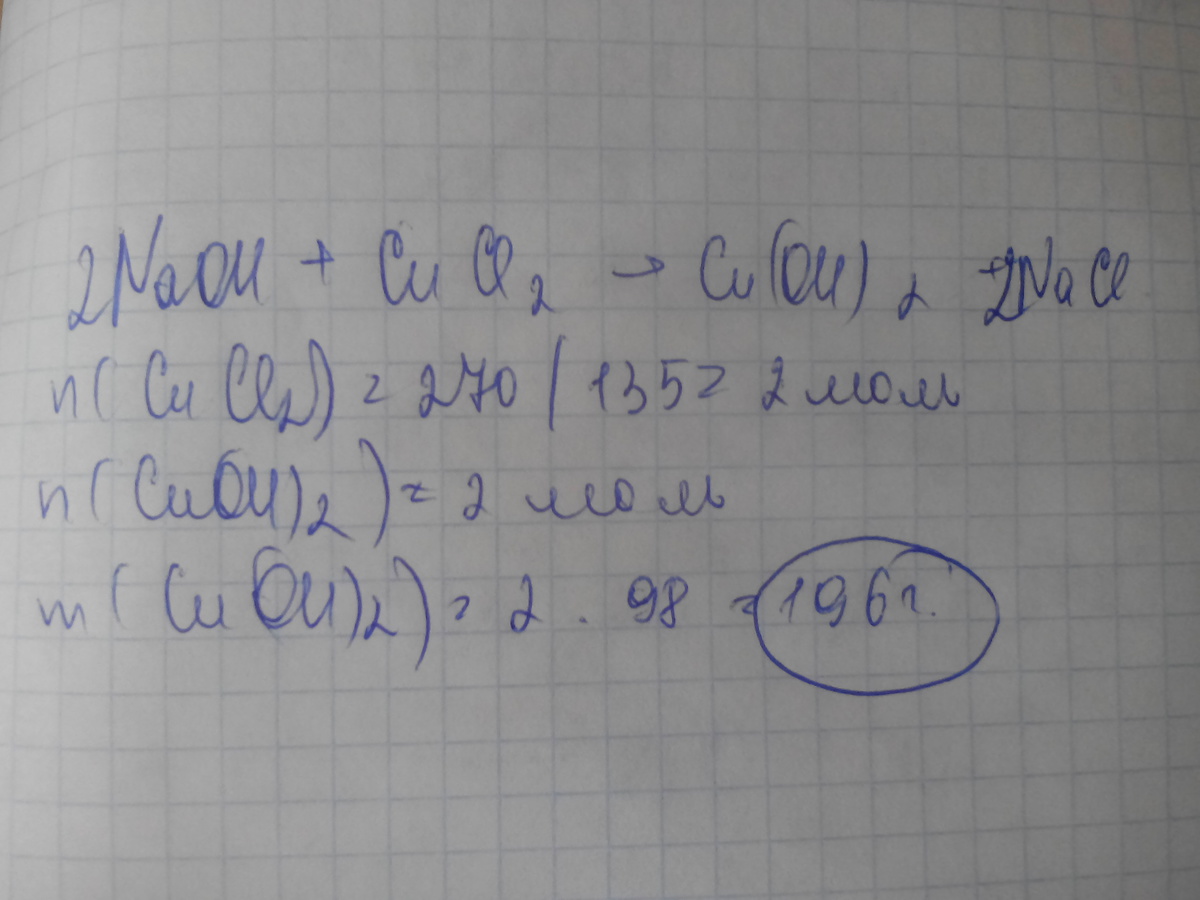 2NaOH + CuCl₂ → Cu(OH)₂ + 2NaCl
n(CuCl₂) = 270 / 135 = 2 моль
n(Cu(OH)₂) = 2 моль
m(Cu(OH)₂) = 2 · 98 = 196 г.